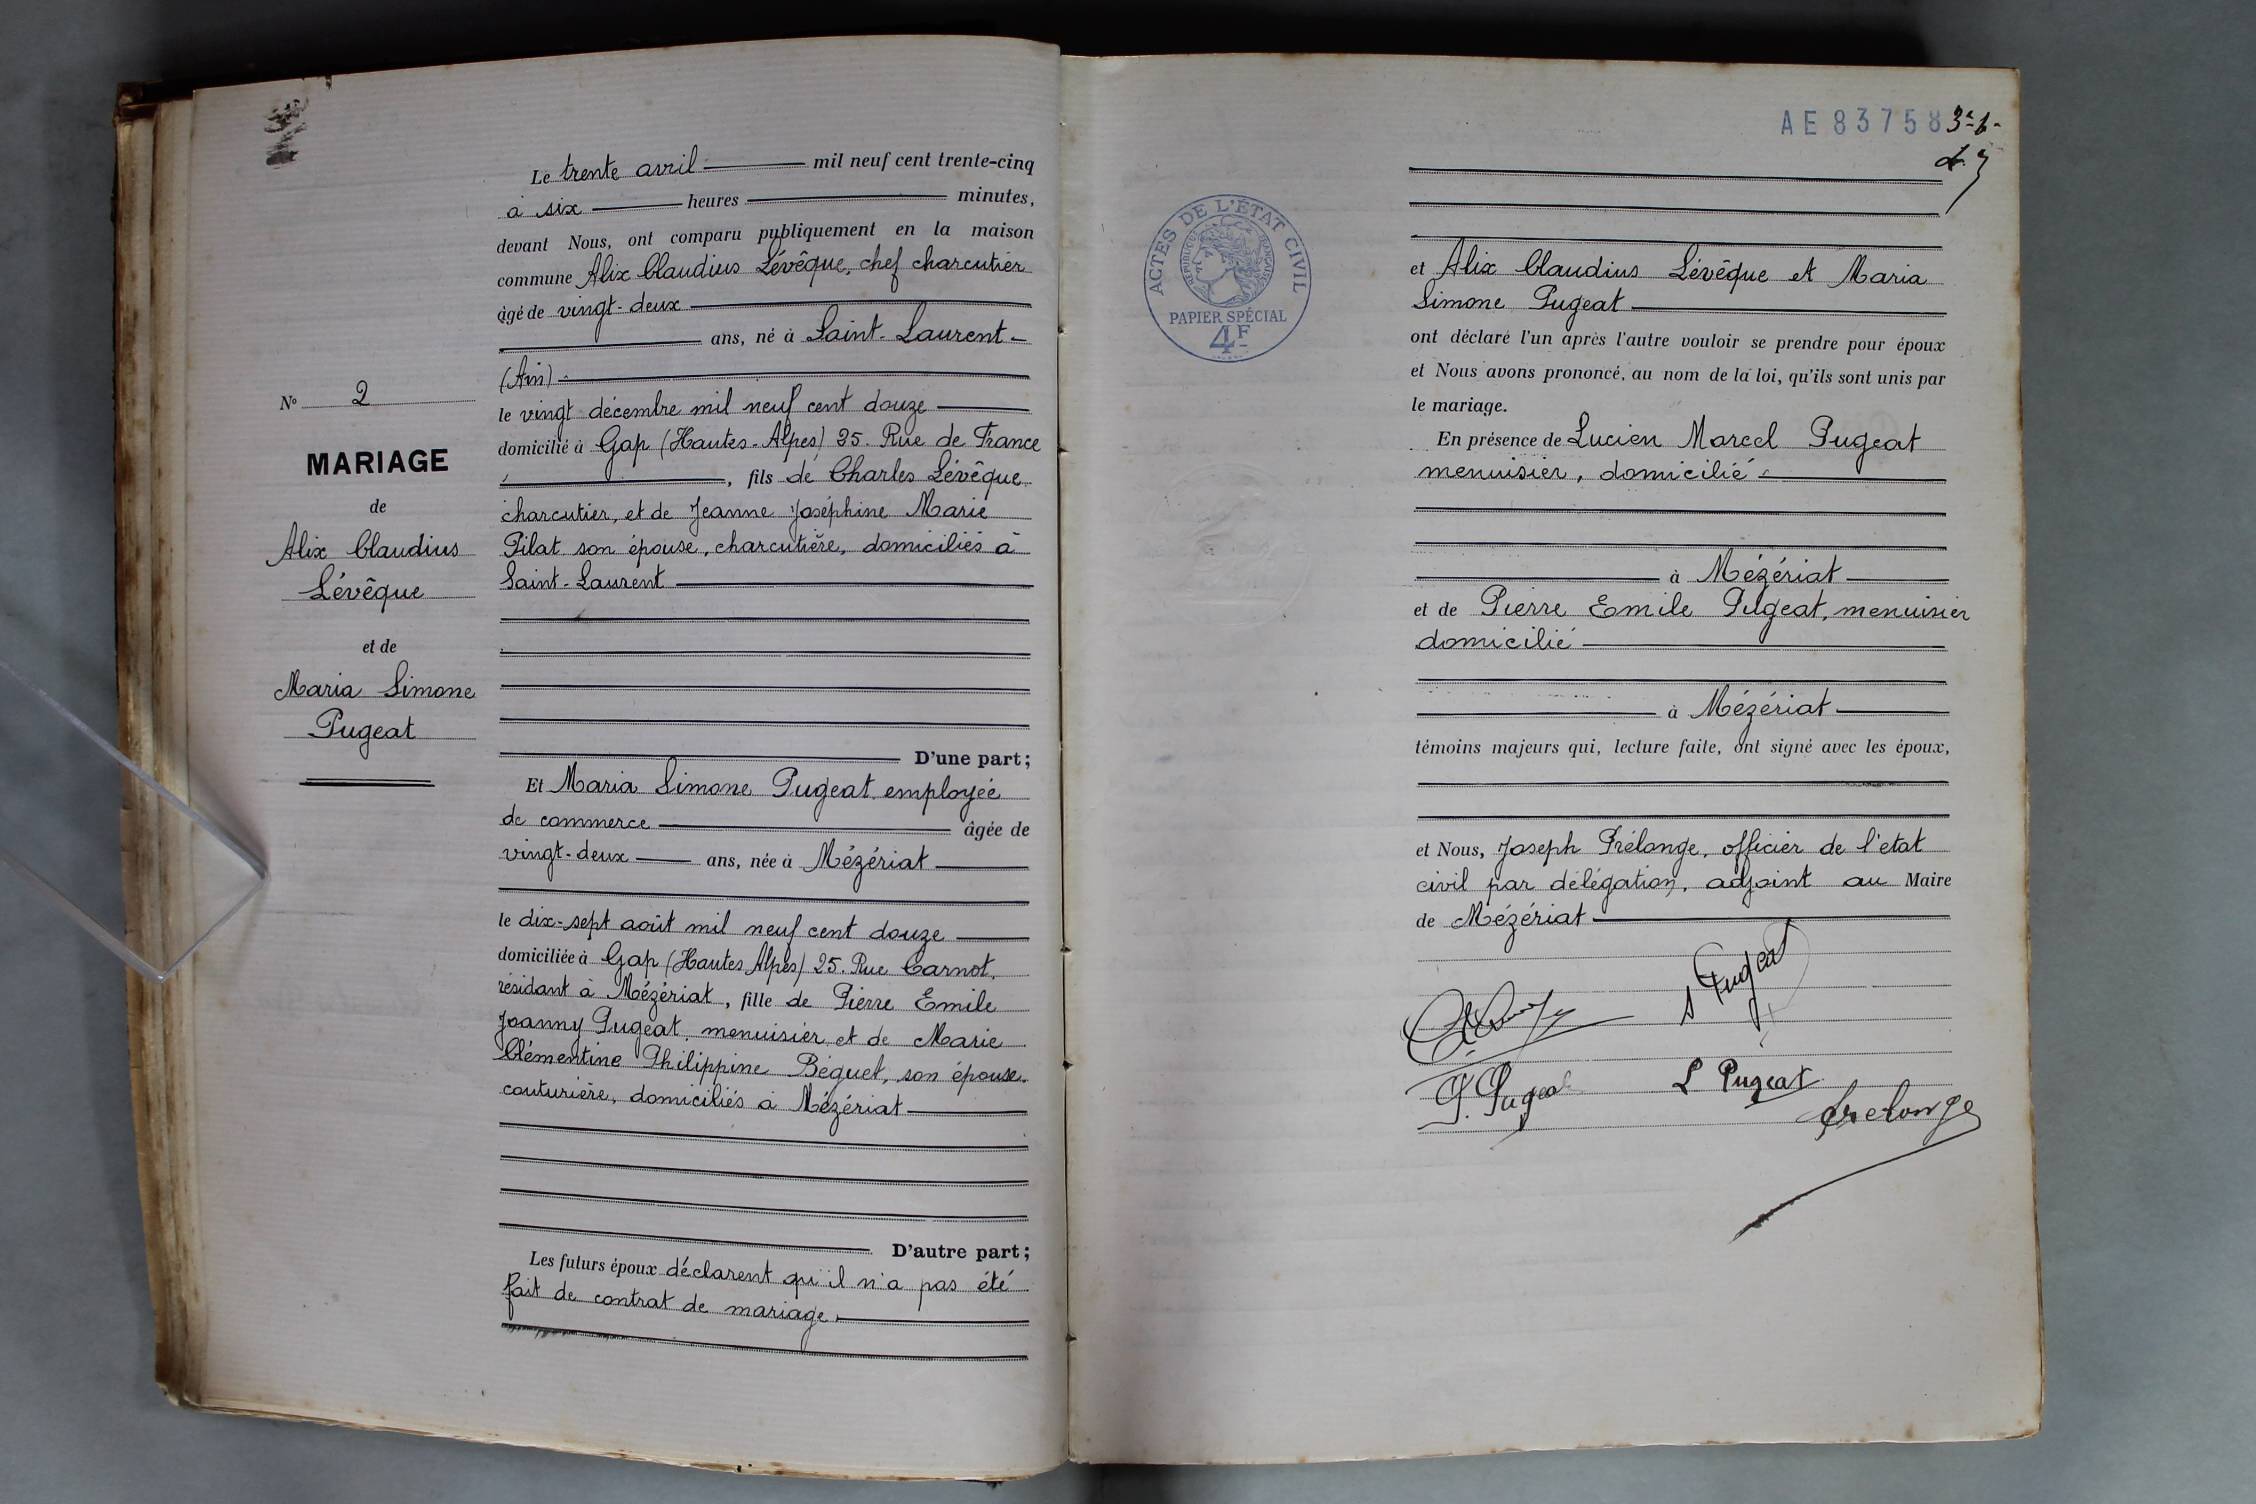 Le trente avril mil neuf cent trente-cinq
à six heures minutes,
devant Nous, ont comparu publiquement en la maison
commune Alix Claudius Lévêque, chef charcutier
âgé de vingt-deux
ans, né à Saint-Laurent-
(Ain)
le vingt décembre mil neuf cent douze
domicilié à Gap (Hautes-Alpes) 25. Rue de France
, fils de Charles Lévêque
charcutier, et de Jeanne Joséphine Marie
Pilat son épouse, charcutière, domiciliés à
Saint-Laurent
D'une part;
Et Maria Simone Pugeat employée
de commerce âgée de
vingt-deux ans, née à Mézériat
le dix-sept août mil neuf cent douze
domiciliée à Gap (Hautes Alpes) 25. Rue Carnot.
résidant à Mézériat, fille de Pierre Emile
Joanny Pugeat, menuisier et de Marie
Clémentine Philippine Béguet, son épouse.
couturière, domiciliés à Mézériat
D'autre part;
Les futurs époux déclarent qu'il n'a pas été
fait de contrat de mariage.
No 2
MARIAGE
de
Alix Claudius
Lévêque
et de
Maria Simone
Pugeat
AE 83758
ACTES DE L'ÉTAT CIVIL
RÉPUBLIQUE FRANÇAISE
PAPIER SPÉCIAL
4F
et Alix Claudius Lévêque et Maria
Simone Pugeat
ont déclaré l'un après l'autre vouloir se prendre pour époux
et Nous avons prononcé, au nom de la loi, qu'ils sont unis par
le mariage.
En présence de Lucien Marcel Pugeat
menuisier, domicilié
à Mézériat
et de Pierre Emile Pugeat, menuisier
domicilié
à Mézériat
témoins majeurs qui, lecture faite, ont signé avec les époux,
et Nous, Joseph Prélonge, officier de l'etat
civil par délégation, adjoint au Maire
de Mézériat
S Pugeat
P. Pugeat
L Pugeat
Prelonge